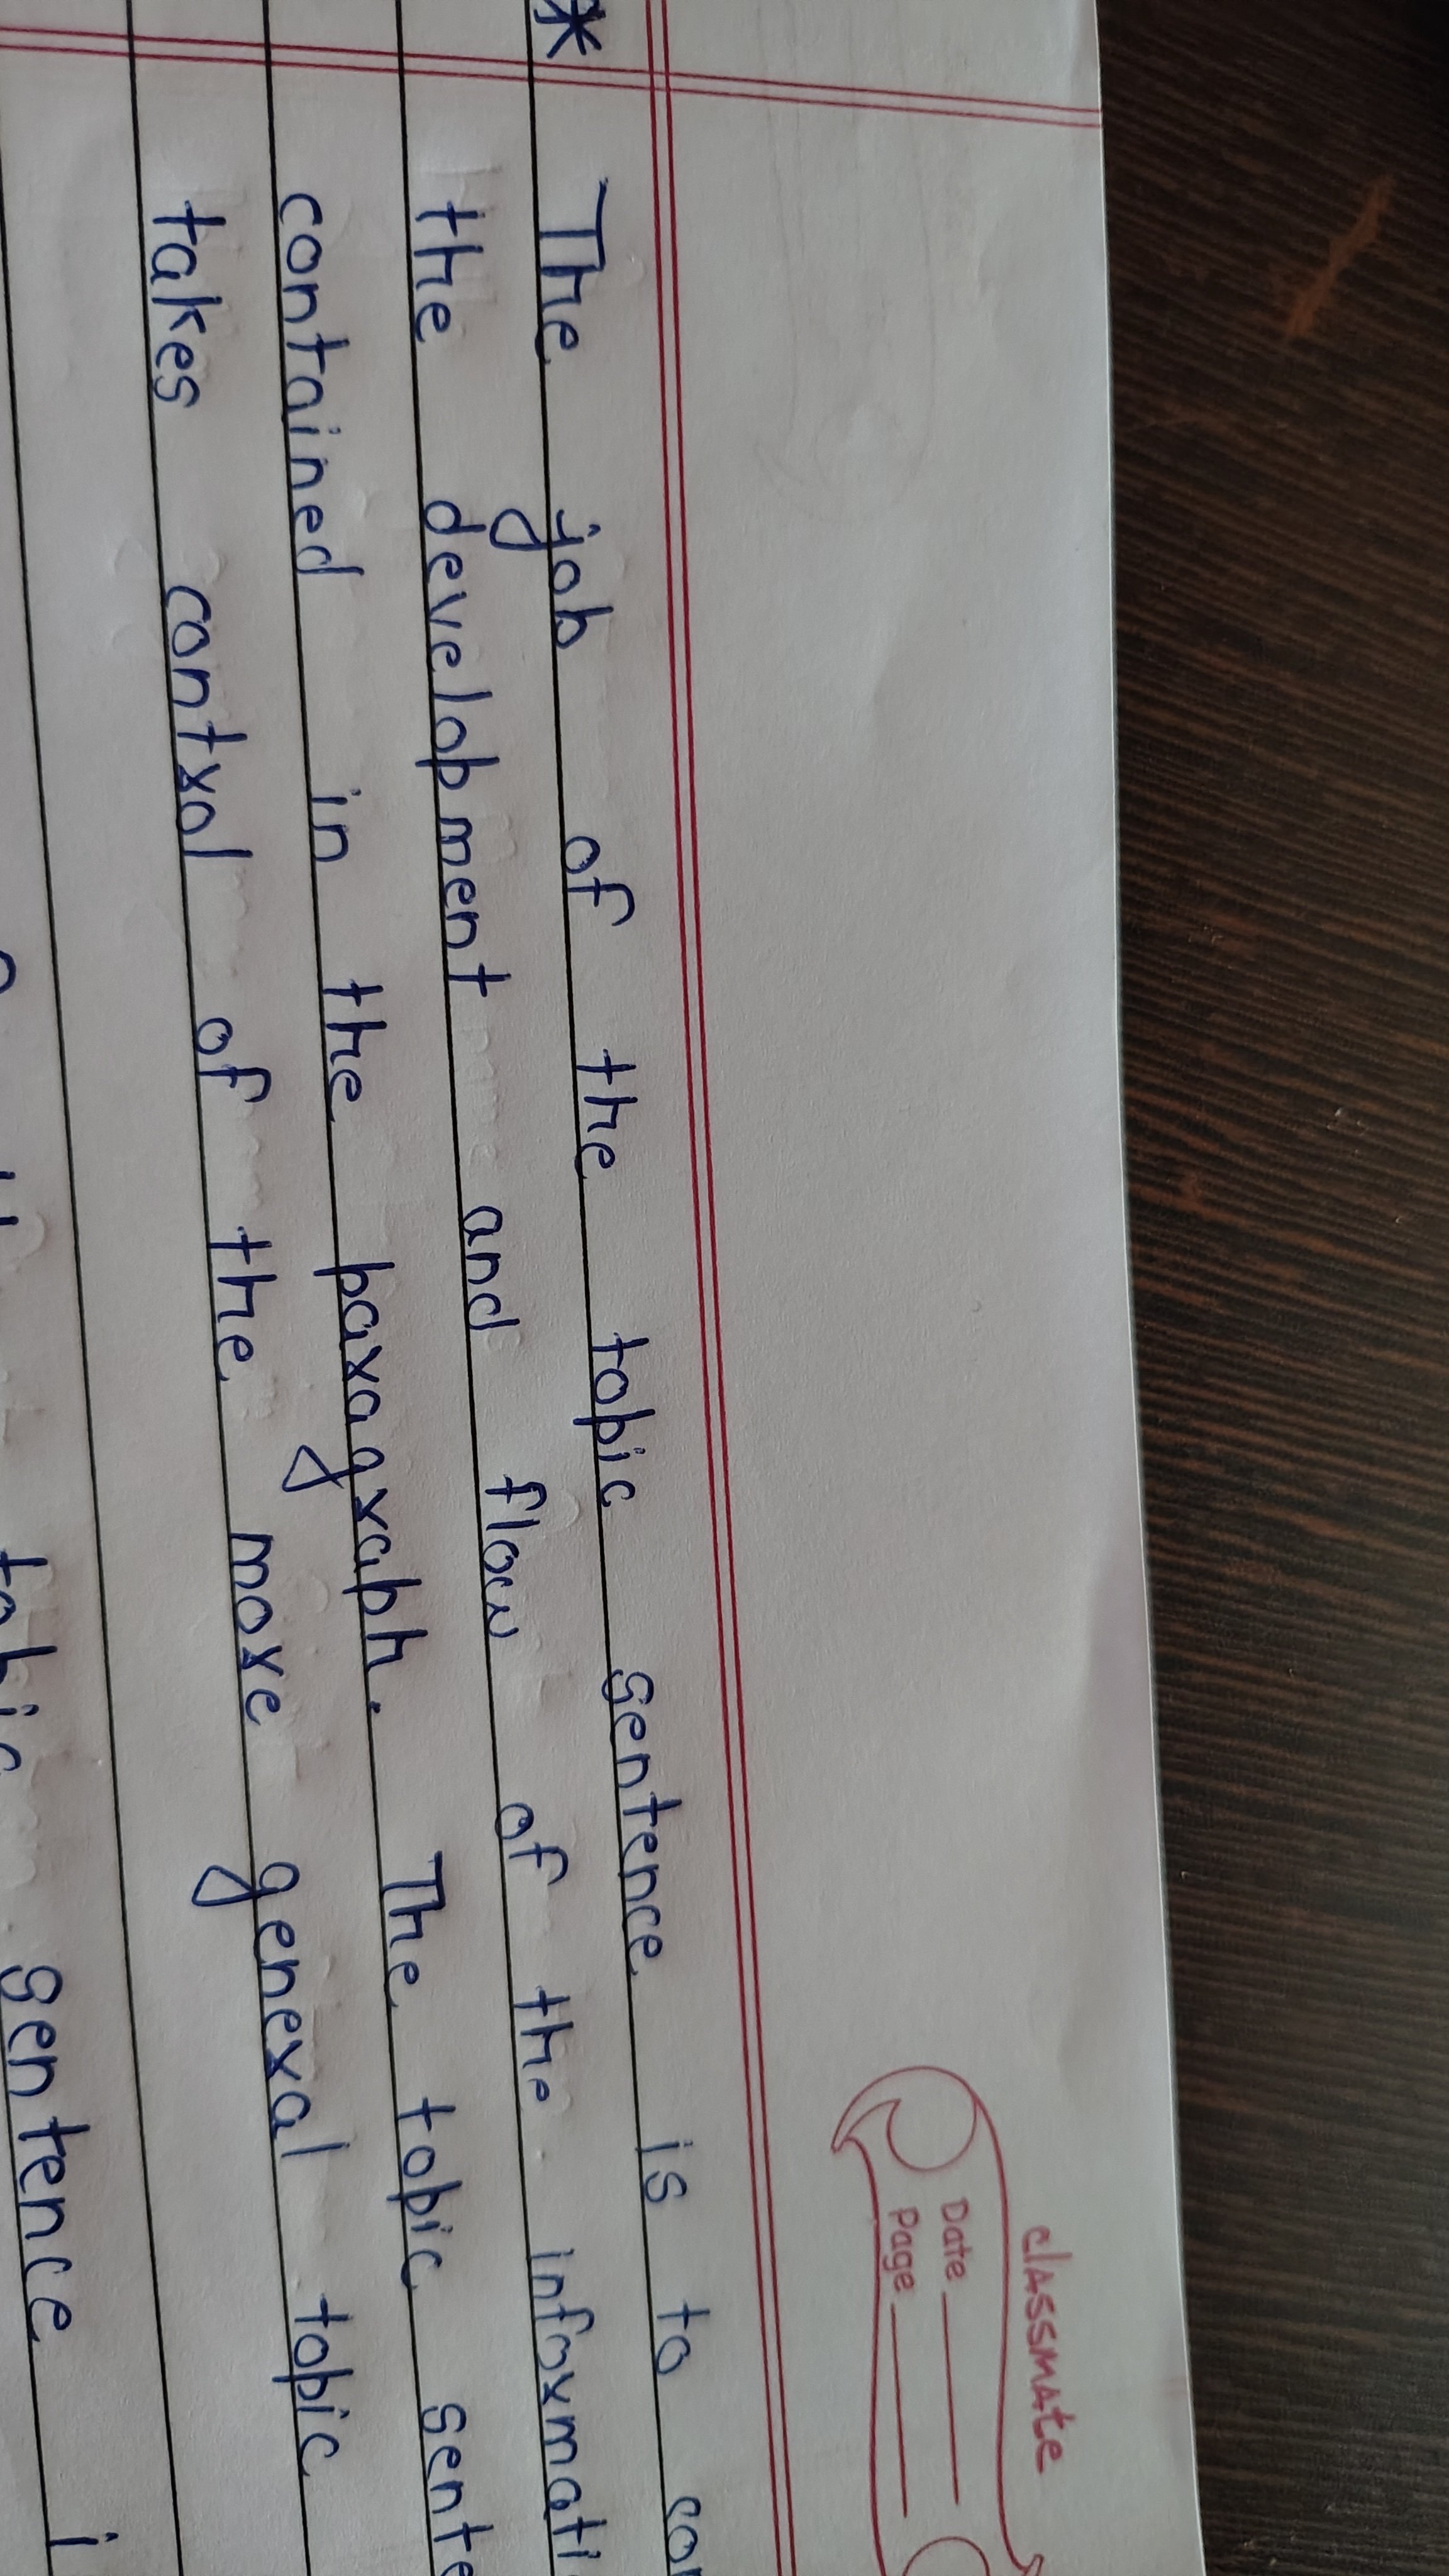 classmate
Date
Page
* The job of the topic sentence is to
the development and flow of the
contained in the paragraph. The topic
takes control of the more general topic
topic sentence